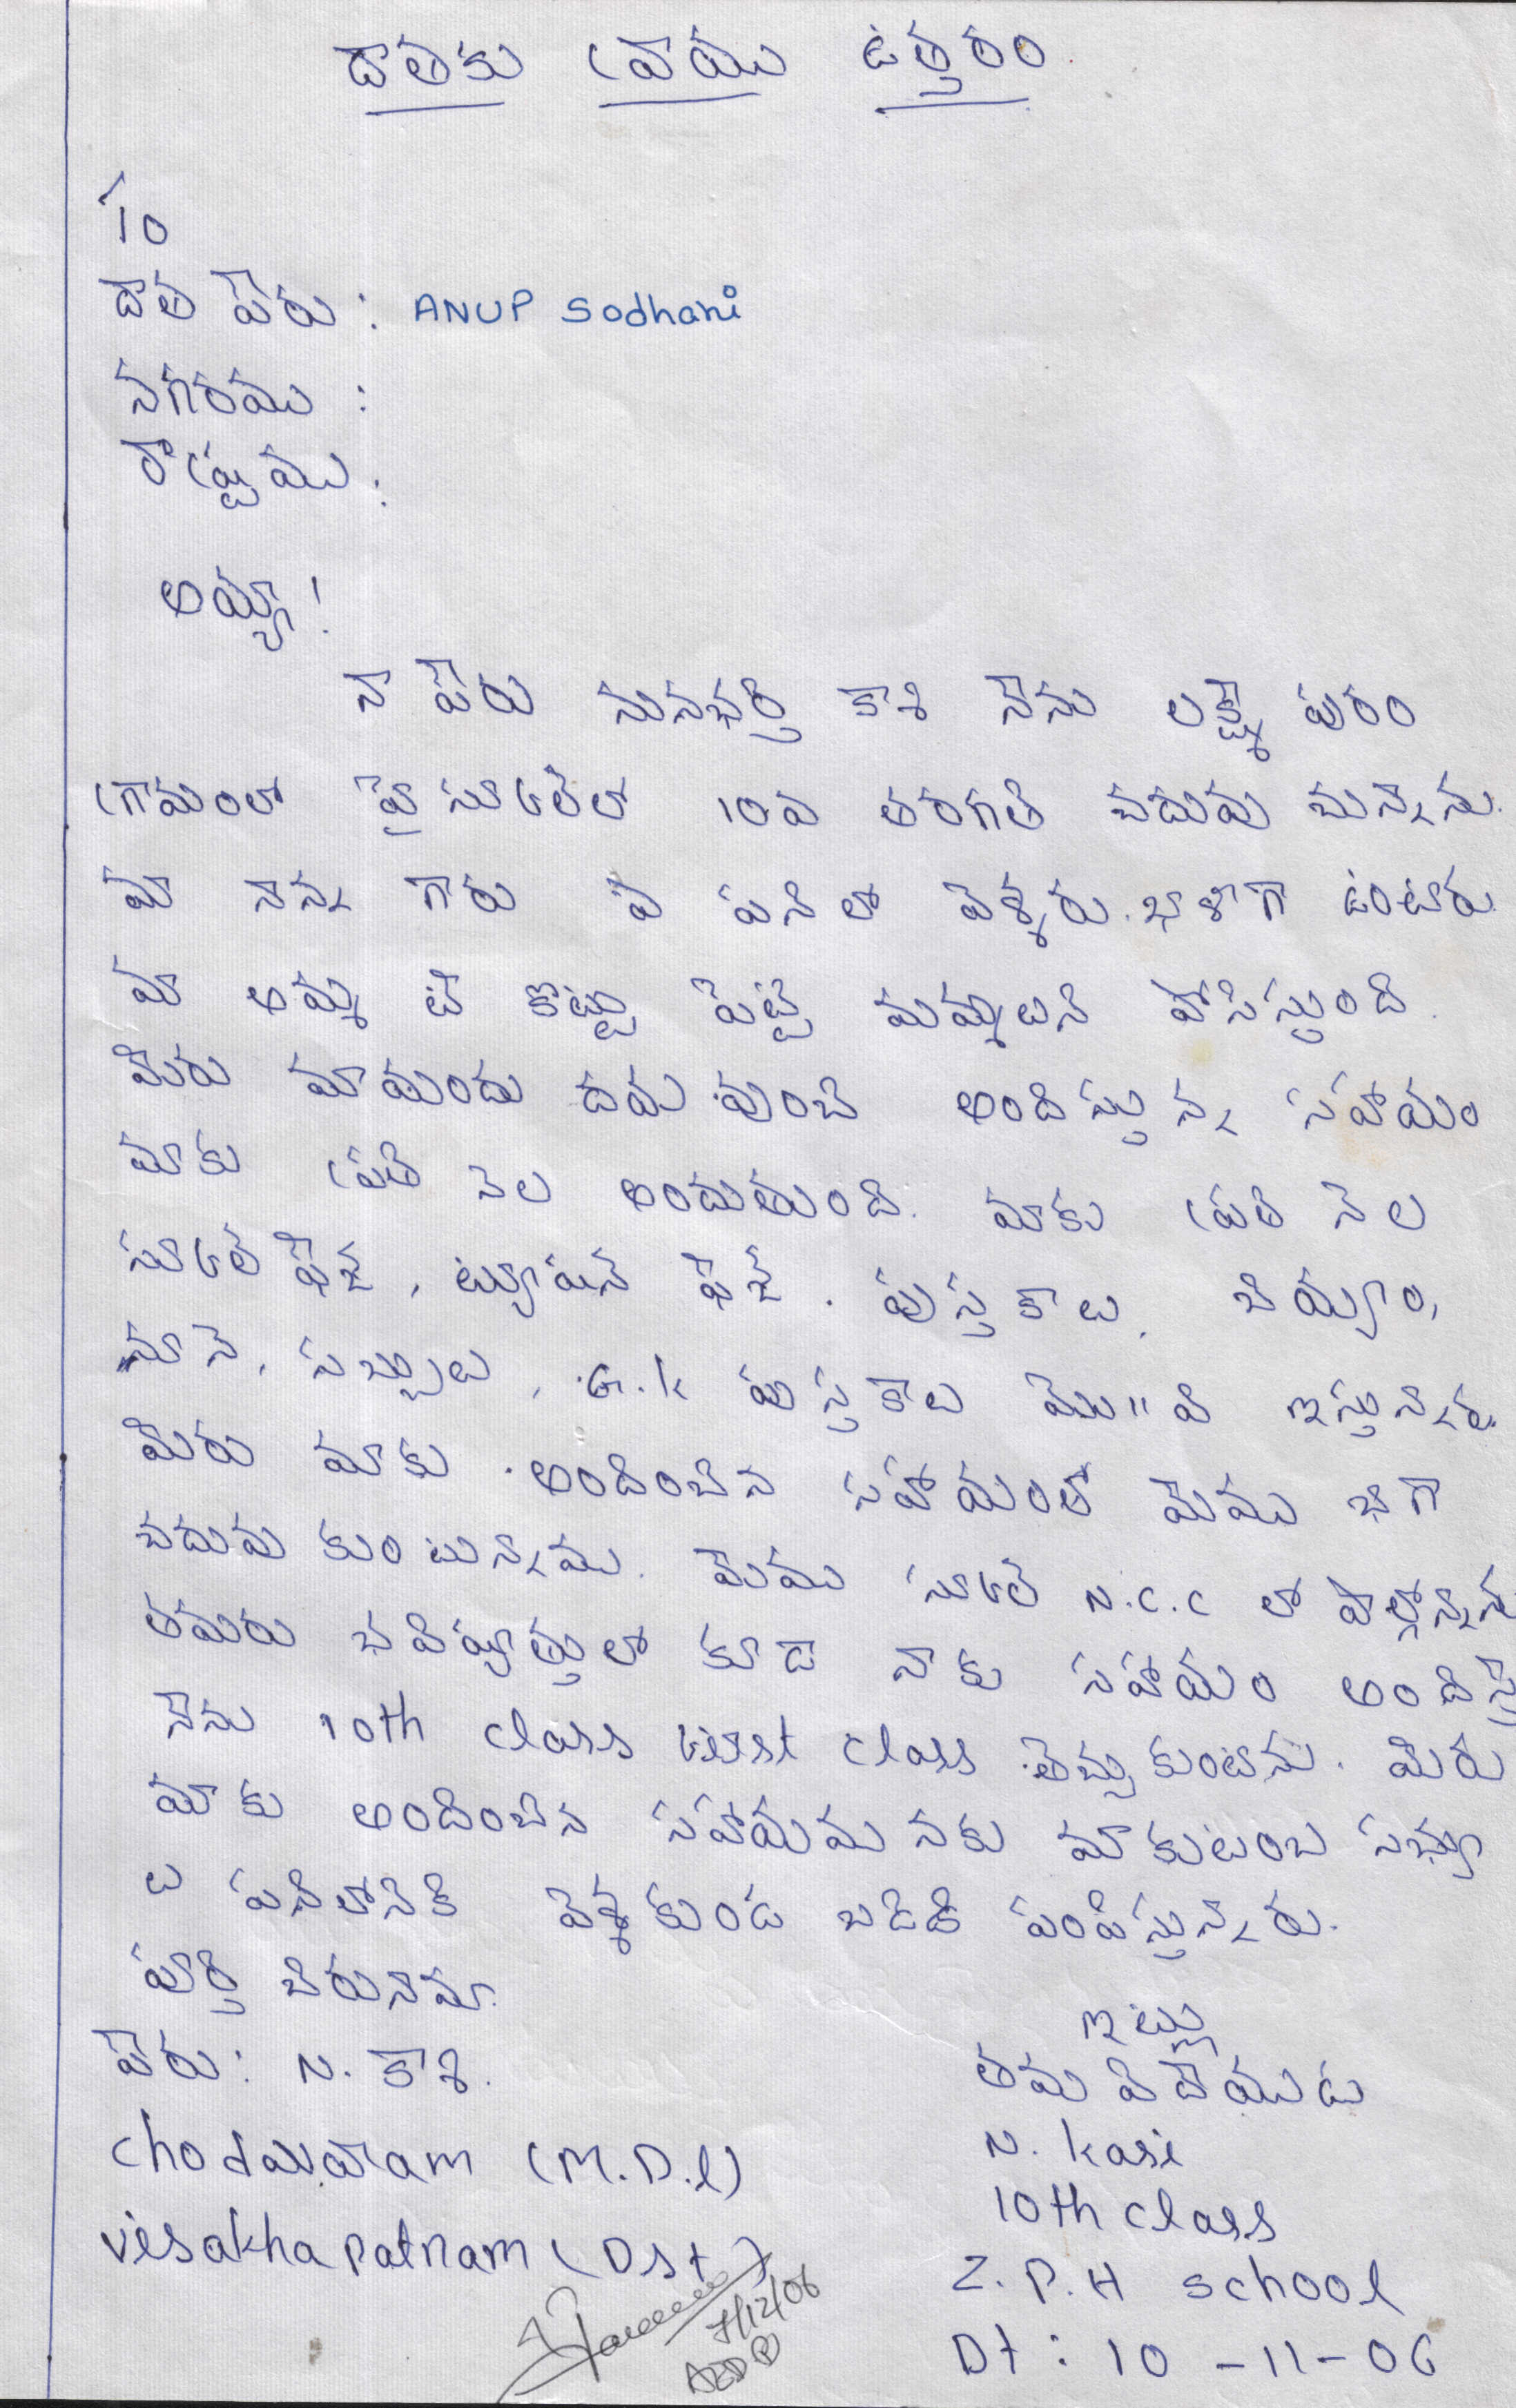 దాతకు వ్రాయు ఉత్తరం.
To
దాత పేరు : ANUP Sodhani
నగరము :
రాష్ట్రము :
అయ్యా!
నా పేరు కాశి నేను లక్ష్మీ పురం
గ్రామంలో హై స్కూలులో 10వ తరగతి చదువు చున్నాను.
మా నాన్న గారు ఏ పనిలో వెళ్ళరు. ఖాళీగా ఉంటారు.
మా అమ్మ టీ కొట్టు పెట్టి మమ్మాలని పోసిస్తుంది.
మీరు మాయందు దయ వుంచి అందిస్తున్న సహాయం
మాకు ప్రతి నెల అందుతుంది. మాకు ప్రతి నెల
స్కూలే ఫీజు, ట్యూషన్ ఫీజు, పుస్తకాలు, బియ్యం,
నూనె, సబ్బులు, G.k పుస్తకాలు మొ॥వి ఇస్తున్నారు.
మీరు మాకు అందించిన సహాయంతో మేము బాగా
చదువు కుంటున్నాము. మేము స్కూలే N.C.C లో పాల్గొన్నాను
తమరు భవిష్యత్తులో కూడా నాకు సహాయం అందిస్తే
నేను 10th class first class తెచ్చుకుంటాను. మీరు
మాకు అందించిన సహాయము నకు మా కుటుంబ సభ్యు
లు పనిలోనికి వెళ్ళకుండ బడికి పంపిస్తున్నారు.
పూర్తి చిరునామా.
పేరు: N. కాశి.
chodavaram (M.D.l)
visakhapatnam (Dst)
ఇట్లు
తమ విదేయుడు
N. kasi
10th class
Z.P.H school
Dt : 10-11-06
7/12/06